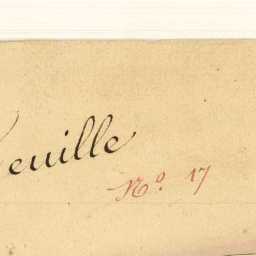 Feuille
Nº. 17